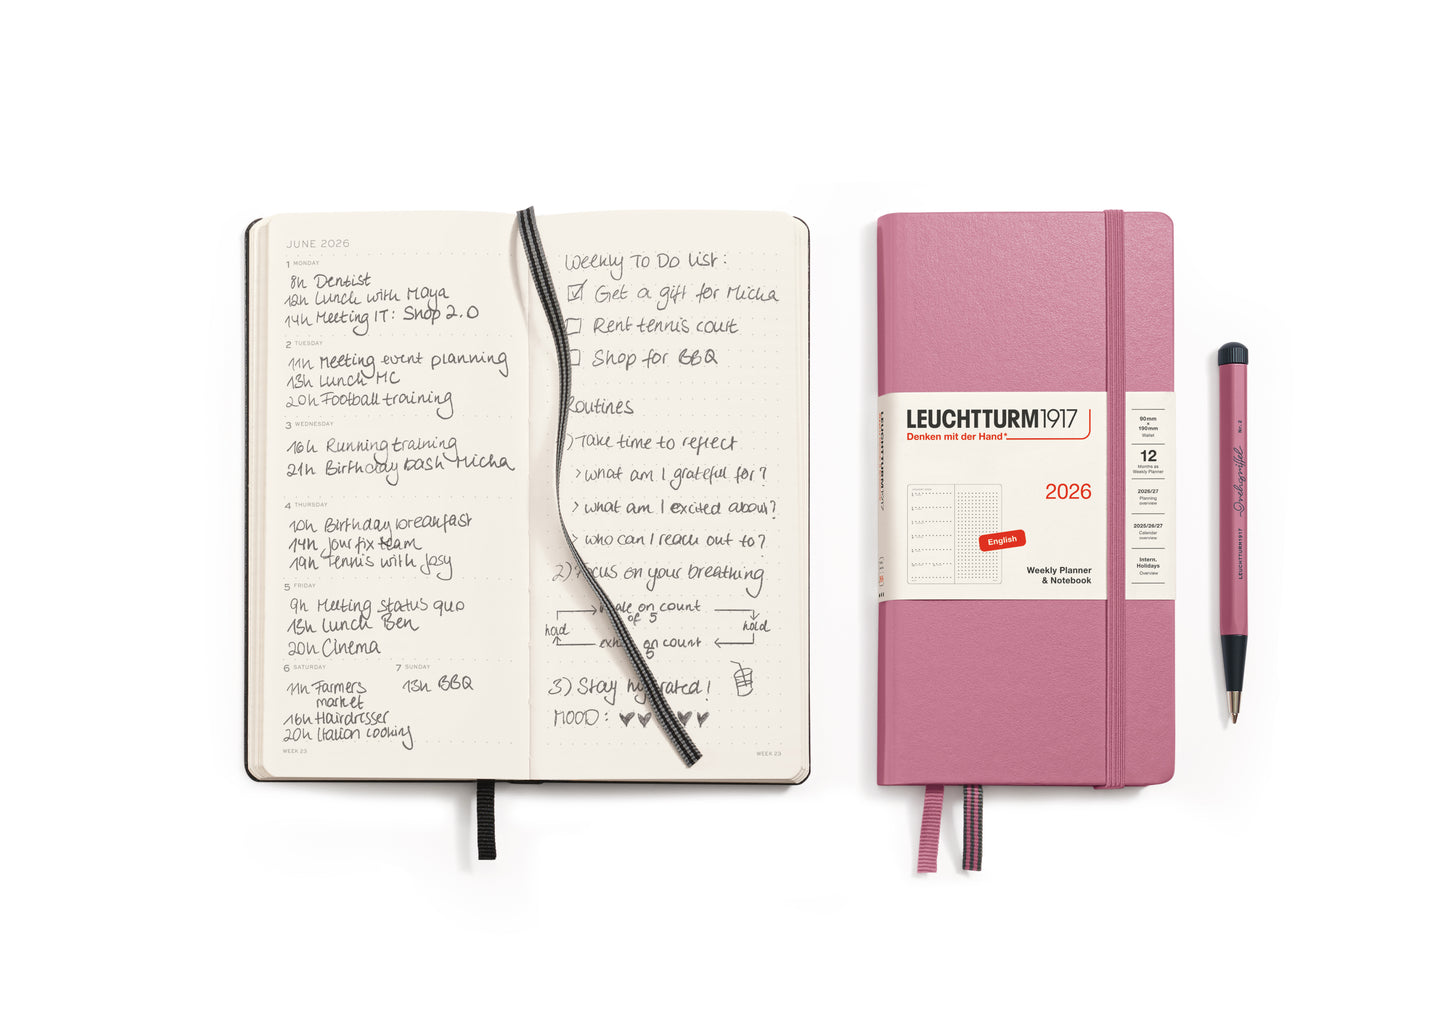 JUNE 2026
1 MONDAY
8h Dentist
12h Lunch with Maya
14h Meeting IT: Shop 2.0
2 TUESDAY
11h Meeting event planning
13h Lunch MC
20h Football training
3 WEDNESDAY
16h Running training
21h Birthday bash Micha
4 THURSDAY
10h Birthday breakfast
14h Jour fix team
19h Tennis with Josy
5 FRIDAY
9h Meeting status quo
13h Lunch Ben
20h Cinema
6 SATURDAY
11h Farmers
market
16h Hairdresser
20h Italian cooking
7 SUNDAY
13h BBQ
WEEK 23
Weekly To Do list:
Get a gift for Micha
Rent tennis court
Shop for BBQ
Routines
) Take time to reflect
> what am I grateful for?
> what am I excited about?
> who can I reach out to?
2) Focus on your breathing
hale on count
of 5
hold
hold
exh on count
5
3) Stay hydrated!
MOOD:
WEEK 23
LEUCHTTURM1917
Denken mit der Hand*
2026
English
Weekly Planner
& Notebook
LEUCHTTURM1917
90mm
x
190mm
Wallet
12
Months as
Weekly Planner
2026/27
Planning
overview
2025/26/27
Calendar
overview
Intern.
Holidays
Overview
LEUCHTTURM1917 Drehgriffel Nr. 2